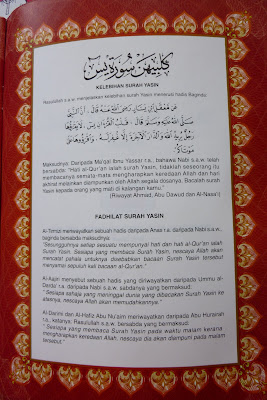 كلبيهن سورة يس
KELEBIHAN SURAH YASIN
Rasulullah s.a.w. menjelaskan kelebihan surah Yasin menerusi hadis Baginda:
عَنْ مَعْقِلِ بْنِ يَسَارٍ رَضِيَ اللهُ عَنْهُ: أَنَّ النَّبِيَّ
صَلَّى اللهُ عَلَيْهِ وَسَلَّمَ قَالَ: قَلْبُ الْقُرْآنِ يٰسٓ، لَا يَقْرَؤُهَا
رَجُلٌ يُرِيدُ اللهَ وَالدَّارَ الْآخِرَةَ إِلَّا غُفِرَ لَهُ، اقْرَءُوهَا عَلَى
مَوْتَاكُمْ.
Maksudnya: Daripada Ma'qal Ibnu Yassar r.a., bahawa Nabi s.a.w. telah
bersabda: "Hati al-Qur'an ialah surah Yasin, tidaklah seseorang itu
membacanya semata-mata mengharapkan keredaan Allah dan hari
akhirat melainkan diampunkan oleh Allah segala dosanya. Bacalah surah
Yasin kepada orang yang mati di kalangan kamu."
(Riwayat Ahmad, Abu Dawud dan Al-Nasa'i)
FADHILAT SURAH YASIN
Al-Tirmizi menyebutkan sebuah hadis daripada Anas r.a. daripada Nabi s.a.w.,
baginda bersabda maksudnya:
"Sesungguhnya setiap sesuatu mempunyai hati dan hati al-Qur'an ialah
Surah Yasin. Sesiapa yang membaca Surah Yasin, nescaya Allah akan
mencatat pahala untuknya disebabkan bacaan Surah Yasin tersebut
menyamai sepuluh kali bacaan al-Qur'an."
Al-Aajiri menyebut sebuah hadis yang diriwayatkan daripada Ummu al-
Darda' r.a. daripada Nabi s.w.w, sabdanya yang bermaksud:
" Sesiapa sahaja yang meninggal dunia yang dibacakan Surah Yasin ke
atasnya, nescaya Allah akan memudahkannya."
Al-Darimi dan Al-Hafiz Abu Nu'aim meriwayatkan daripada Abu Hurairah
r.a., katanya: Rasulullah s.a.w. bersabda yang bermaksud:
" Sesiapa yang membaca Surah Yasin pada waktu malam kerana
mengharapkan keredaan Allah, nescaya dia akan diampuni pada malam
tersebut."